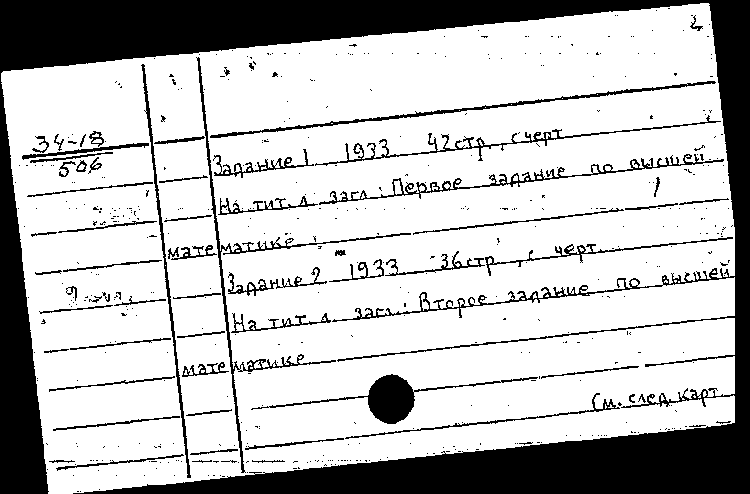 2
34-18
506
Задание 1 1933 42 стр., с черт.
На тит. л. загл.: Первое задание по высшей
математике.
Задание 2 1933 36 стр., с черт.
На тит. л. загл.: Второе задание по высшей
математике
См. след. карт.